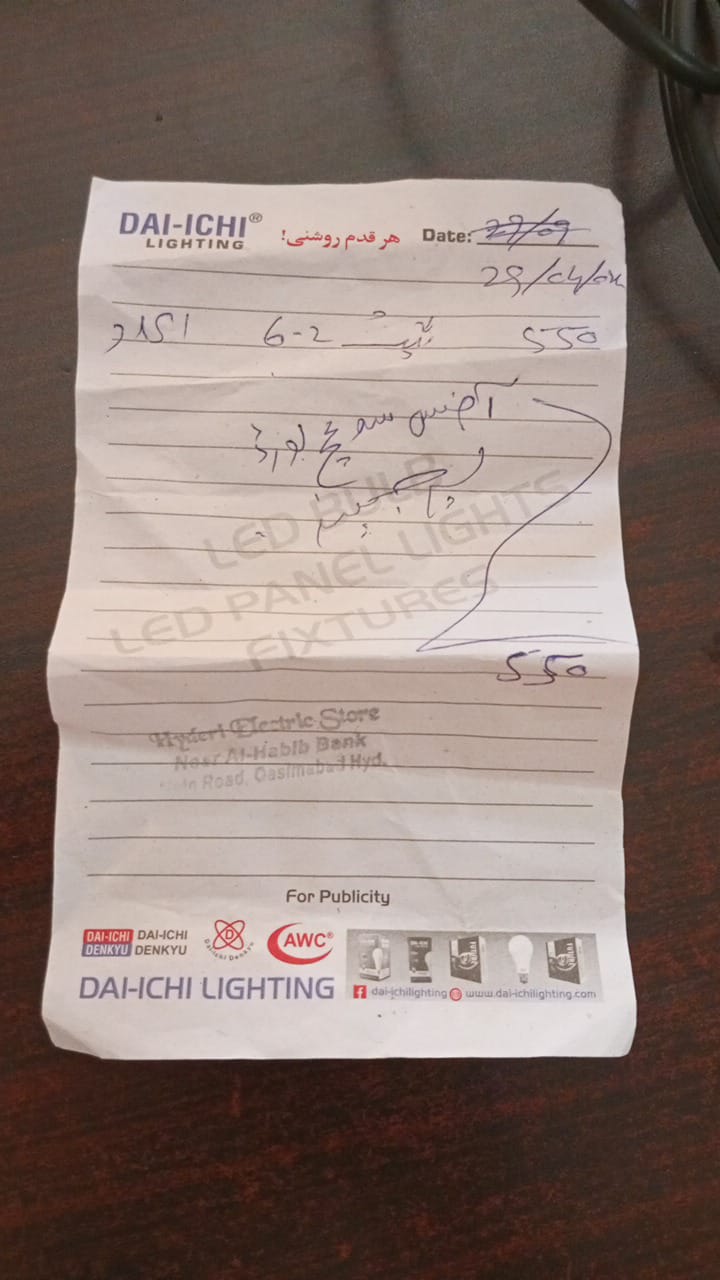 DAI-ICHI®
LIGHTING
هر قدم روشنی!
Date: 29/09
29/04/
6-2
550
آفس سوئچ بورڈ
550
LED BULB
LED PANEL LIGHTS
FIXTURES
Hyderi Electric Store
Near Al-Habib Bank
Main Road, Qasimabad Hyd.
For Publicity
DAI-ICHI DENKYU
DAI-ICHI DENKYU
D
Daiichi Denkyu
AWC®
DAI-ICHI LIGHTING
dai-ichilighting
www.dai-ichilighting.com